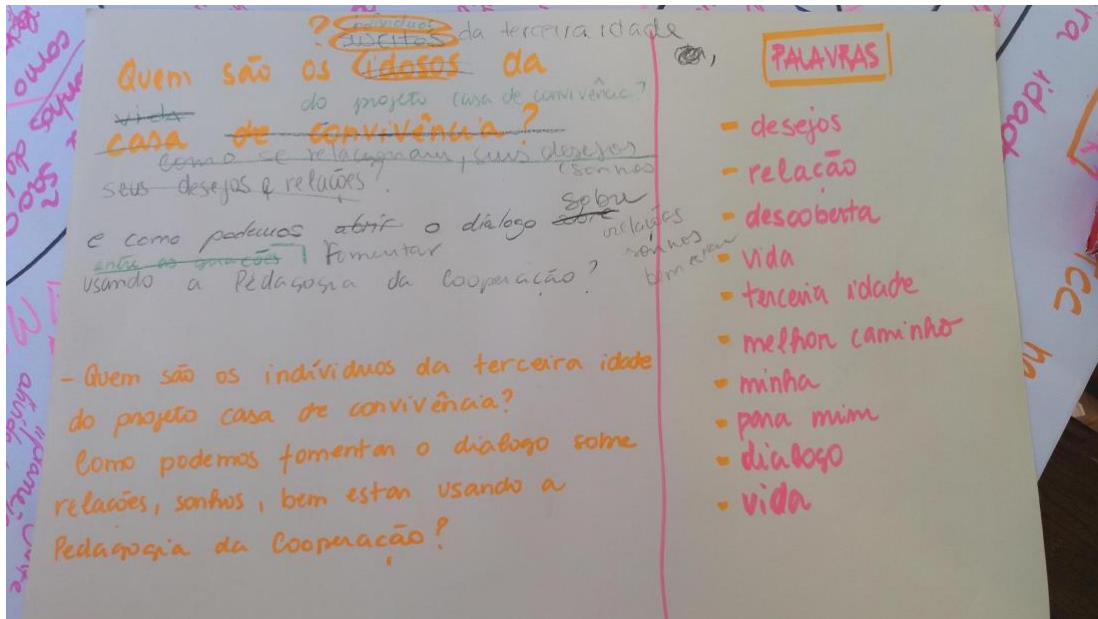 ? indivíduos
SUJEITOS da terceira idade
Quem são os idosos da
vida do projeto casa de convivência?
casa de convivência?
Como se relacionam, seus desejos
(sonhos
seus desejos e relações?
sobre
e como podemos abrir o diálogo sobre
relações
entre as gerações fomentar
sonhos
usando a Pedagogia da Cooperação?
bem estar
- Quem são os indíviduos da terceira idade
do projeto casa de convivência?
Como podemos fomentar o dialogo sobre
relações, sonhos, bem estar usando a
Pedagogia da Cooperação?
PALAVRAS
- desejos
- relação
- descoberta
- vida
- terceria idade
- melhor caminho
- minha
- para mim
- dialogo
- vida